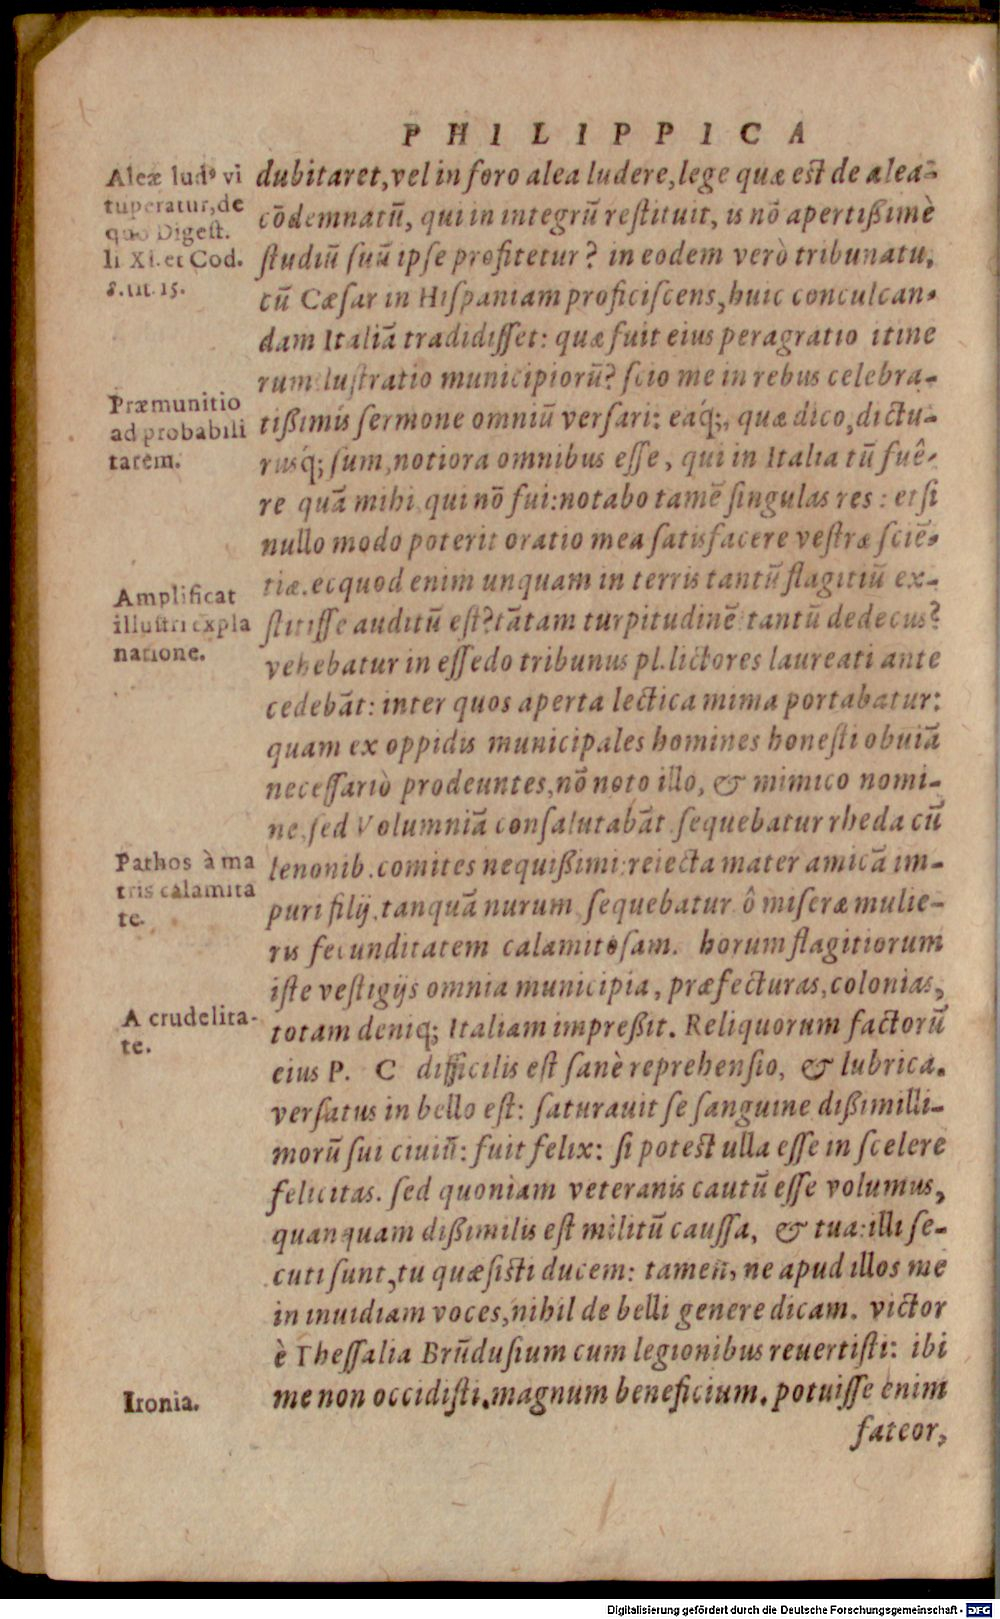 PHILIPPICA
Aleæ ludꝰ vi
tuperatur, de
quo Digest.
li XI. et Cod.
8. tit. 15.
dubitaret, vel in foro alea ludere, lege quæ est de alea-
cōdemnatū, qui in integrū restituit, is nō apertißimè
studiū suū ipse profitetur? in eodem verò tribunatu,
cū Cæsar in Hispaniam proficiscens, huic conculcan-
dam Italiā tradidisset: quæ fuit eius peragratio itine
rum lustratio municipiorū? scio me in rebus celebra-
tißimis sermone omniū versari: eaq́;, quæ dico, dictu-
rusq́; sum, notiora omnibus esse, qui in Italia tū fuê-
re quā mihi qui nō fui: notabo tamē singulas res: et si
nullo modo poterit oratio mea satisfacere vestræ sciē-
tiæ. ecquod enim unquam in terris tantū flagitiū ex-
stitisse auditū est? tātam turpitudinē tantū dedecus?
vehebatur in essedo tribunus pl. lictores laureati ante
cedebāt: inter quos aperta lectica mima portabatur:
quam ex oppidis municipales homines honesti obuiā
necessariò prodeuntes, nō noto illo, & mimico nomi-
ne, sed Volumniā consalutabāt. sequebatur rheda cū
lenonib. comites nequißimi: reiecta mater amicā im-
puri filij, tanquā nurum sequebatur. ô miseræ mulie-
ris fecunditatem calamitosam. horum flagitiorum
iste vestigijs omnia municipia, præfecturas, colonias,
totam deniq; Italiam impreßit. Reliquorum factorū
eius P. C difficilis est sanè reprehensio, & lubrica.
versatus in bello est: saturauit se sanguine dißimilli-
morū sui ciuiū: fuit felix: si potest ulla esse in scelere
felicitas. sed quoniam veteranis cautū esse volumus,
quanquam dißimilis est militū caussa, & tua: illi se-
cuti sunt, tu quæsisti ducem: tamen, ne apud illos me
in inuidiam voces, nihil de belli genere dicam. victor
è Thessalia Brūdusium cum legionibus reuertisti: ibi
me non occidisti. magnum beneficium. potuisse enim
fateor,
Præmunitio
ad probabili
tatem.
Amplificat
illustri expla
natione.
Pathos à ma
tris calamita
te.
A crudelita-
te.
Ironia.
Digitalisierung gefördert durch die Deutsche Forschungsgemeinschaft - DFG